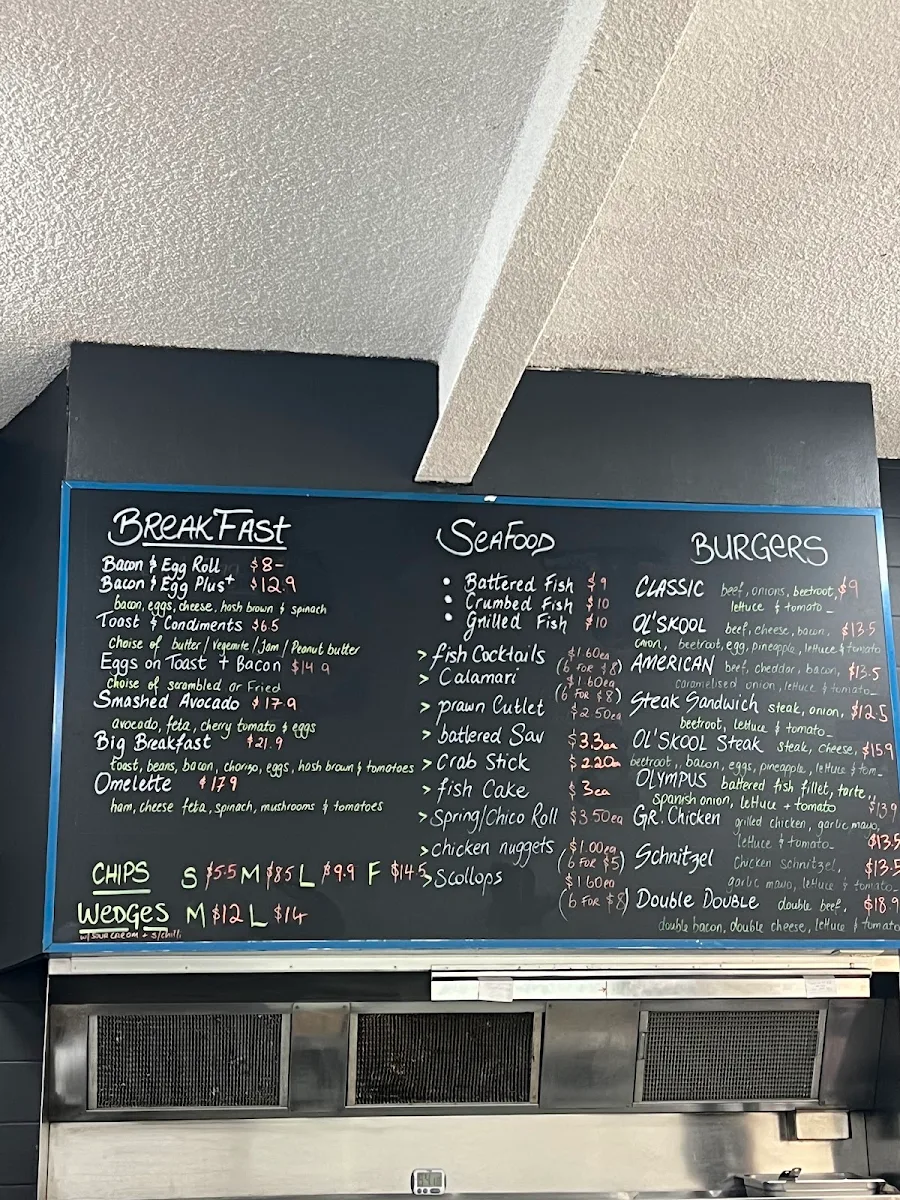 BREAKFAST
Bacon & Egg Roll $8-
Bacon & Egg Plus+ $12.9
bacon, eggs, cheese, hash brown & spinach
Toast & Condiments $6.5
Choise of butter / Vegemite / Jam / Peanut butter
Eggs on Toast + Bacon $14.9
Choise of scrambled or Fried
Smashed Avocado $17.9
avocado, feta, cherry tomato & eggs
Big Breakfast $21.9
toast, beans, bacon, chorizo, eggs, hash brown & tomatoes
Omelette $17.9
ham, cheese feta, spinach, mushrooms & tomatoes
CHIPS S $5.5 M $8.5 L $9.9 F $14.5
WEDGES M $12 L $14
w/ SOUR CREAM + S/chilli
SEAFOOD
• Battered Fish $9
• Crumbed Fish $10
• Grilled Fish $10
> fish Cocktails $1.60ea
(6 FOR $8)
> Calamari $1.60ea
(6 FOR $8)
> prawn Cutlet $2.50ea
> battered Sav $3.3ea
> Crab Stick $2.20ea
> fish Cake $3ea
> Spring/Chico Roll $3.50ea
> chicken nuggets $1.00ea
(6 FOR $5)
> Scollops $1.60ea
(6 FOR $8)
BURGERS
CLASSIC beef, onions, beetroot, $9
lettuce & tomato_
OL'SKOOL beef, cheese, bacon, $13.5
onion, beetroot, egg, pineapple, lettuce & tomato
AMERICAN beef, cheddar, bacon, $13.5
caramelised onion, lettuce & tomato_
Steak Sandwich steak, onion, $12.5
beetroot, lettuce & tomato_
OL'SKOOL Steak steak, cheese, $15.9
beetroot, bacon, eggs, pineapple, lettuce & tom_
OLYMPUS battered fish fillet, tarte,
spanish onion, lettuce + tomato $13.9
GR. Chicken grilled chicken, garlic mayo,
lettuce & tomato_ $13.5
Schnitzel chicken schnitzel, $13.5
garlic mayo, lettuce & tomato_
Double Double double beef, $18.9
double bacon, double cheese, lettuce & tomato